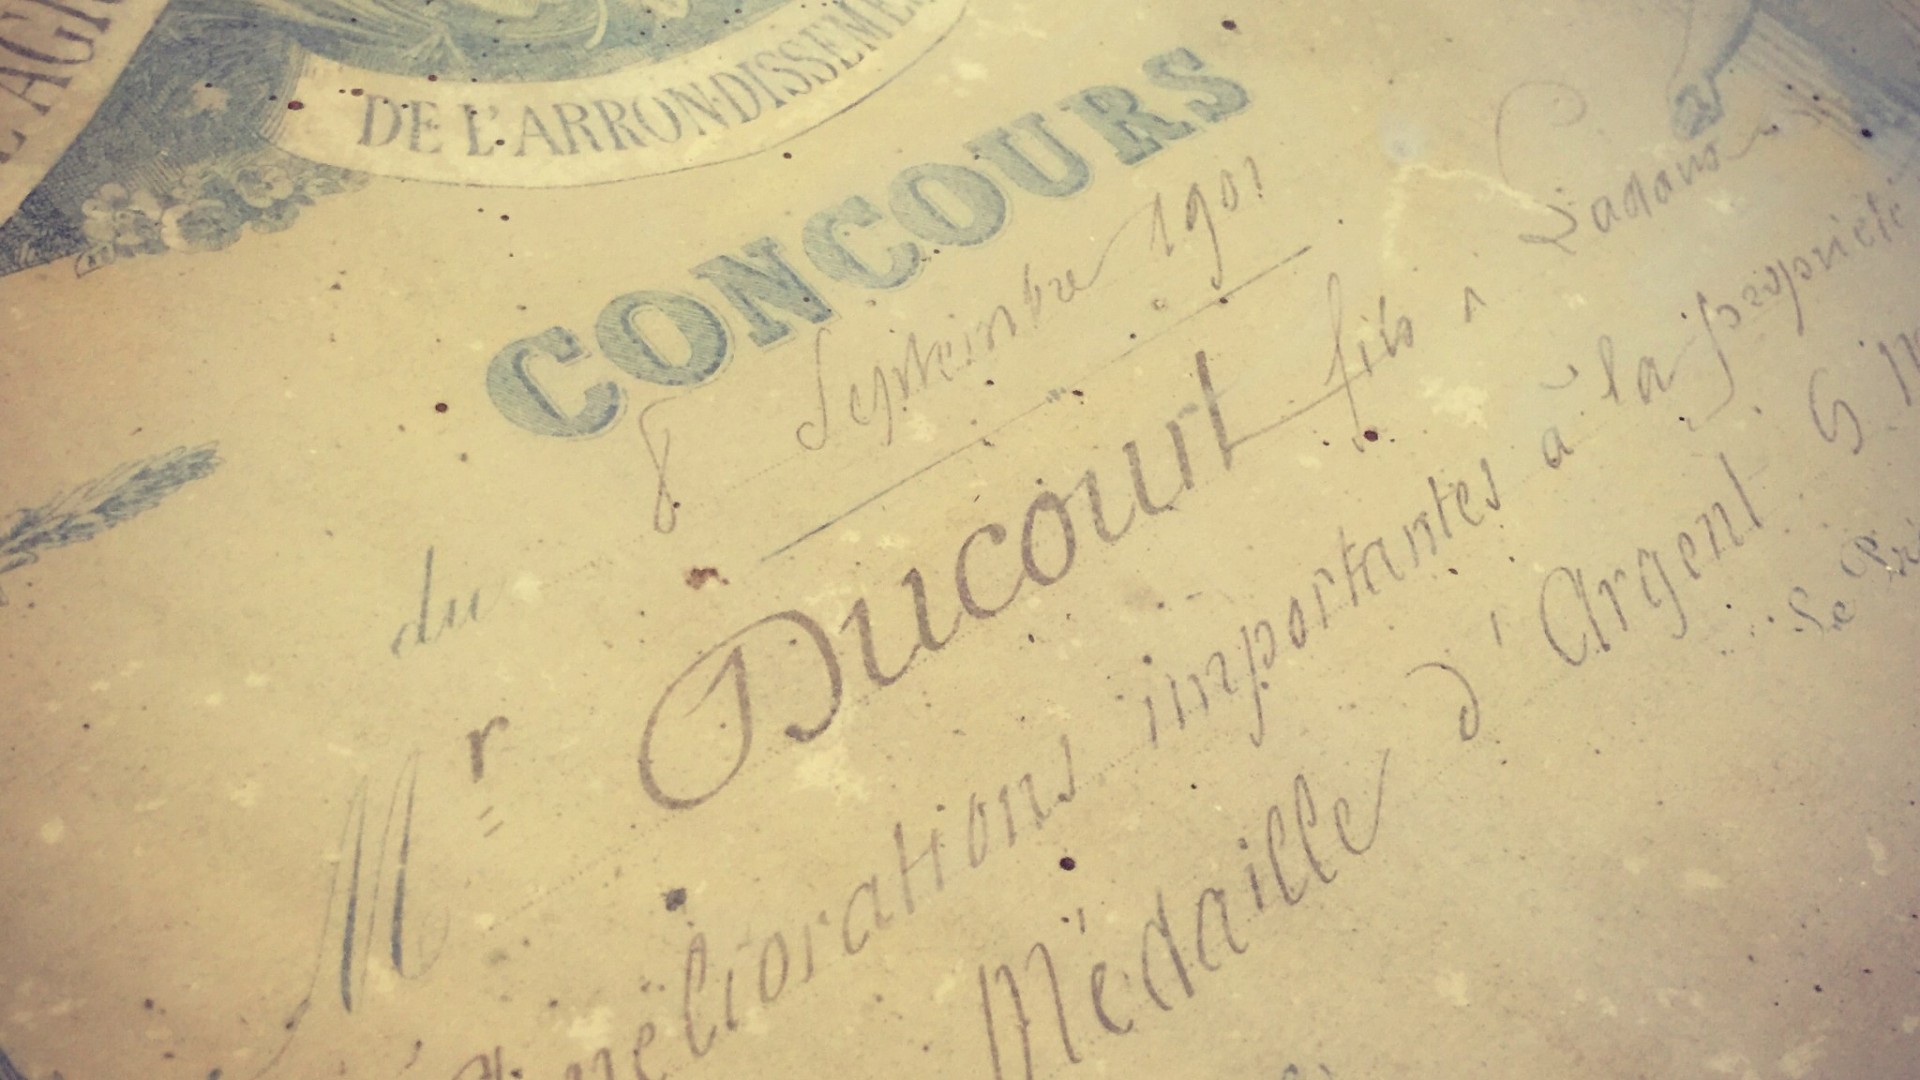 DE L'ARRONDISSEME
CONCOURS
du 8 Septembre 1901
Mr Ducourt fils à
Améliorations importantes à la propriété
Médaille d'Argent G M
Le